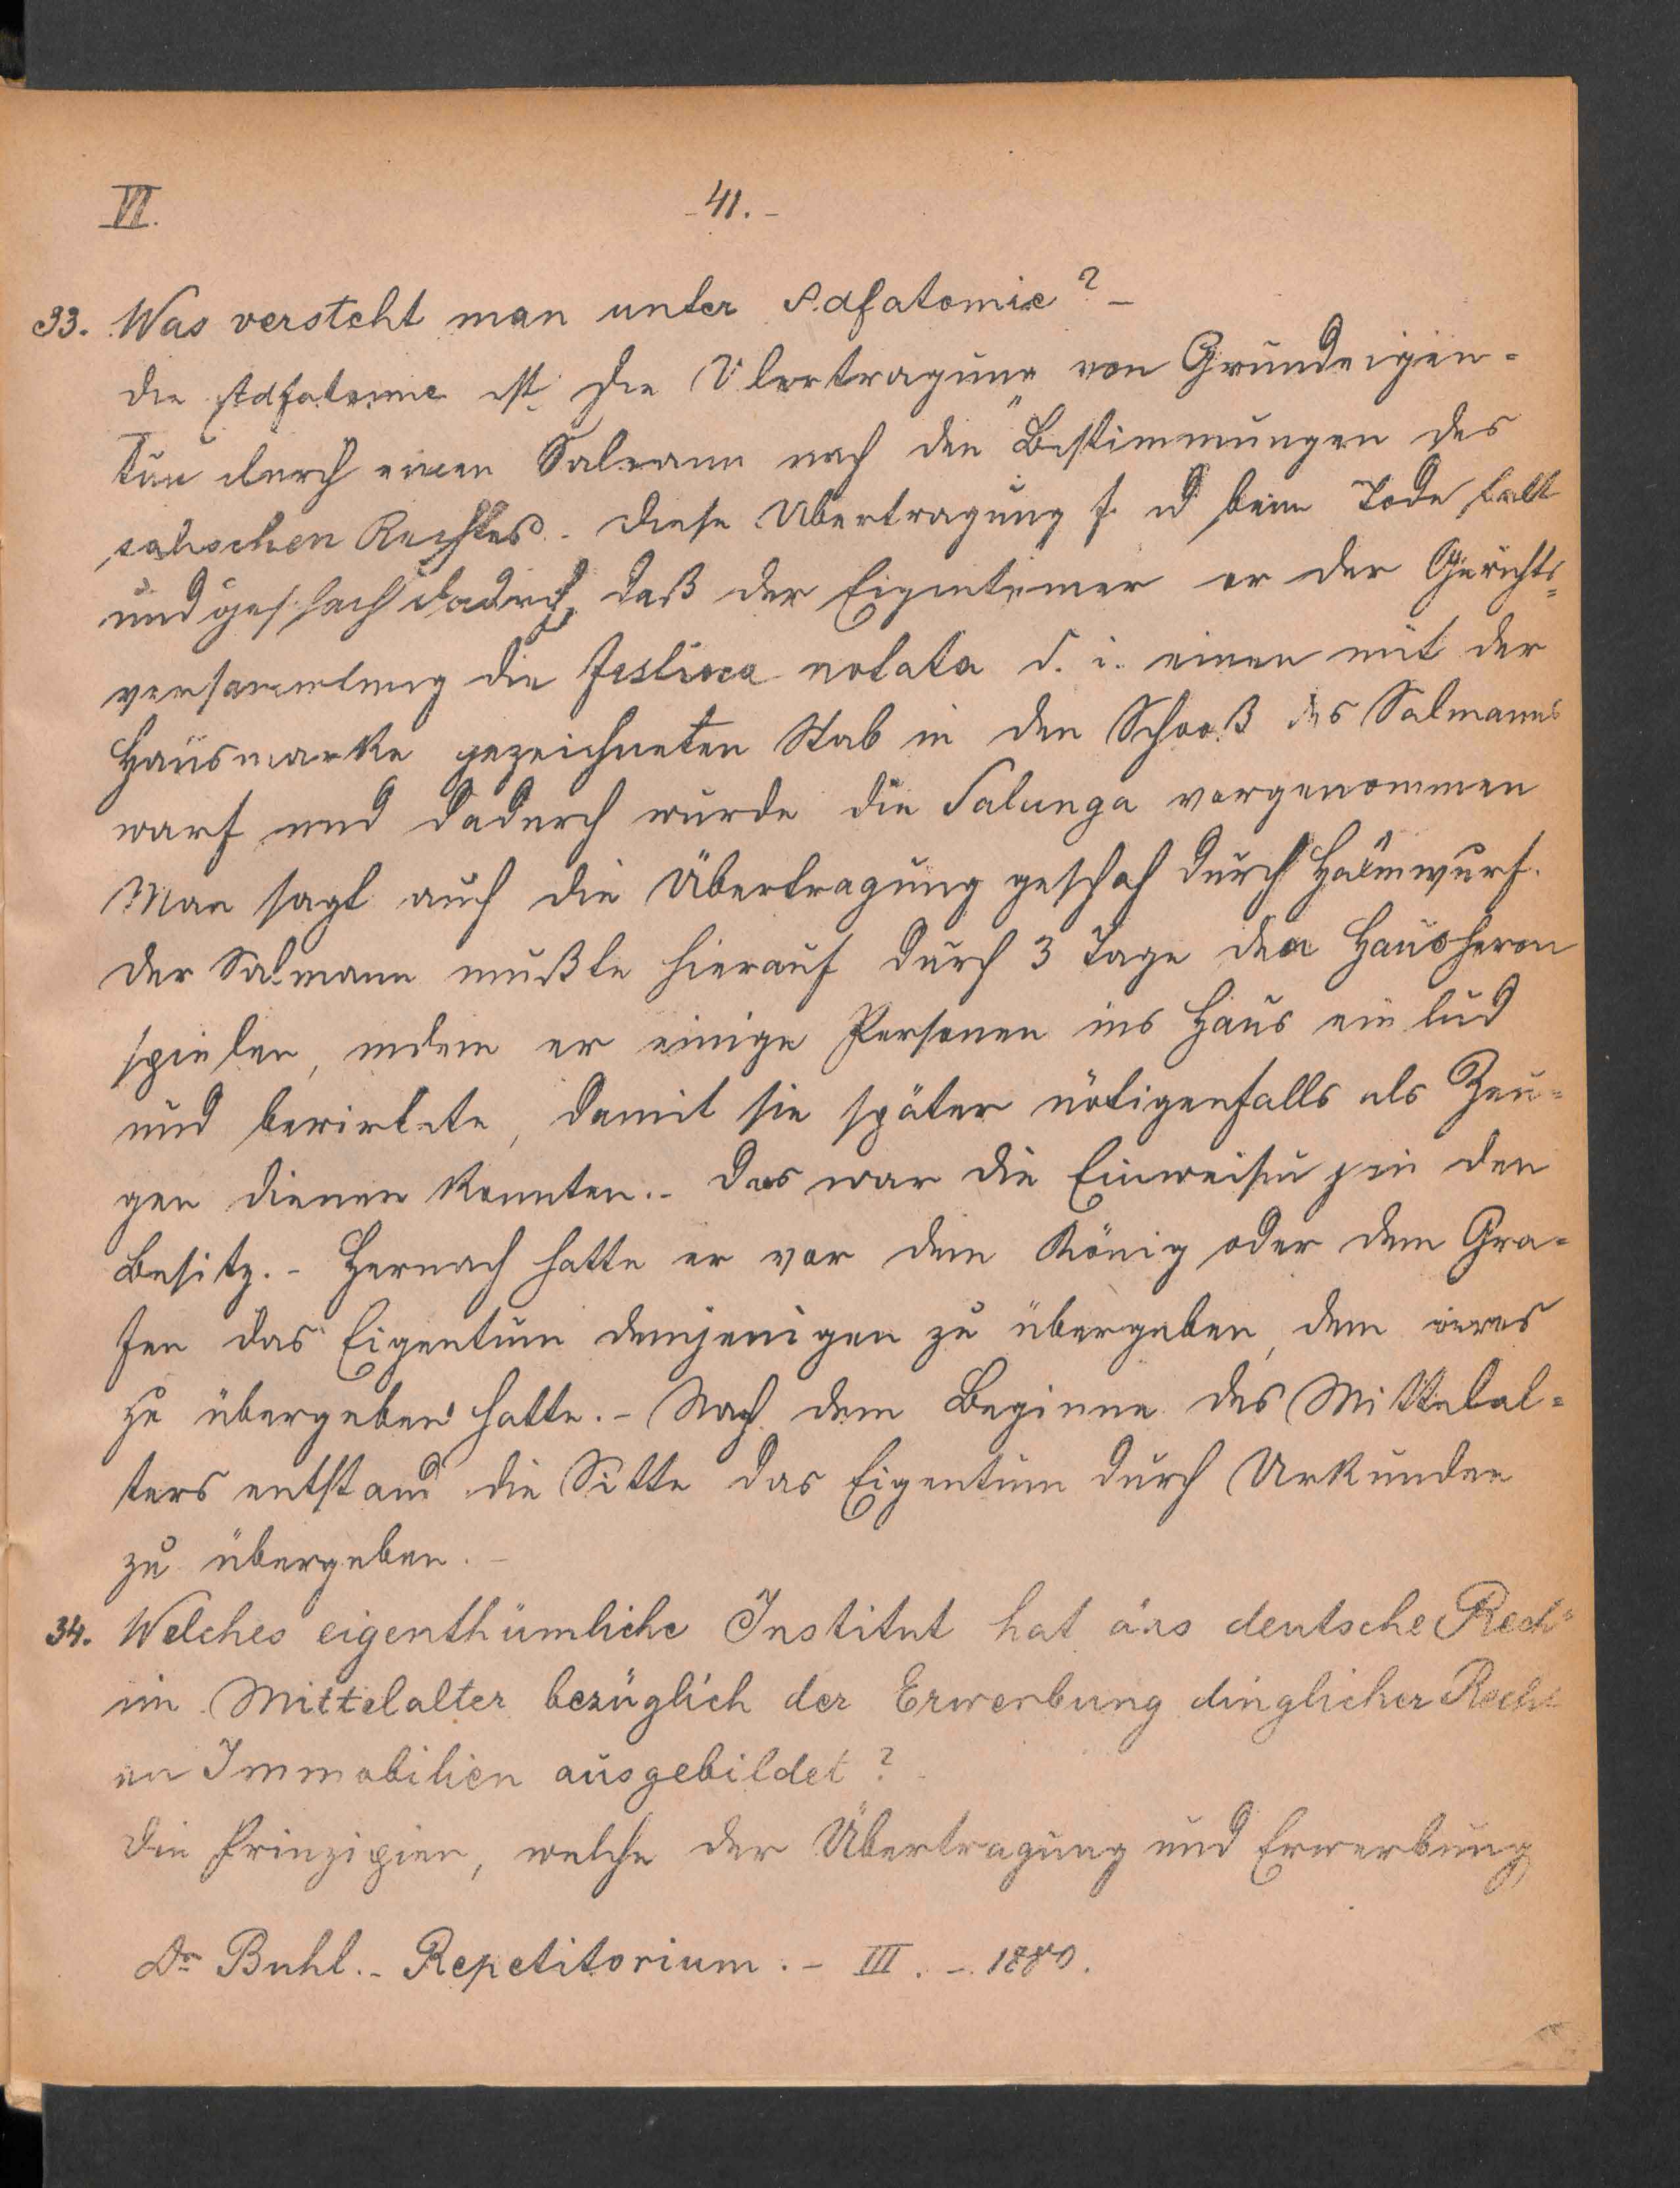 VI.
- 41. -
33. Was versteht man unter Adfatomie? -
die Adfatomie ist die Übertragung von Grundeigen-
tum durch einen Salmann nach den Bestimmungen des
salischen Rechtes. - diese Übertragung f. d beim Tode statt
und geschah dadrch, daß der Eigentümer vor der Gerichts-
versammlung die festuca notata d. i. einen mit der
Hausmarke gezeichneten Stab in den Schooß des Salmanns
warf und dadurch wurde die Salunga vorgenommen
Man sagt auch die Übertragung geschah durch Halmwurf.
der Salmann mußte hierauf durch 3 Tage den Hausherrn
spielen, indem er einige Personen ins Haus ein lud
und bewirtete, damit sie später nötigenfalls als Zeu-
gen dienen konnten. - das war die Einweisung in den
Besitz. - Hernach hatte er vor dem König oder dem Gra-
fen das Eigentum demjenigen zu übergeben, dem er es
zu übergeben hatte. - Nach dem Beginne des Mittelal-
ters entstand die Sitte das Eigentum durch Urkunden
zu übergeben. -
34. Welches eigenthümliche Institut hat das deutsche Recht
im Mittelalter bezüglich der Erwerbung dinglicher Rechte
an Immobilien ausgebildet?
die Prinzipien, welche der Übertragung und Erwerbung
Dr Buhl. - Repetitorium. - III. - 1880.